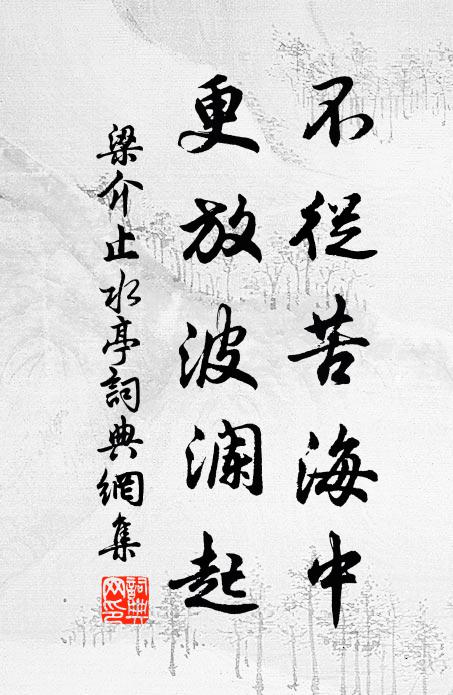 不從苦海中
更放波瀾起
梁介止水亭詞典網集
詞典網印